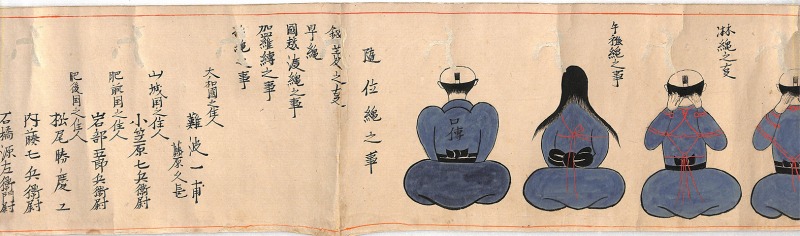 淋縄之事
午程縄之事
口傳
随位縄之事
早縄
國越渡縄之事
伽羅縛之事
縄之事
大和國之住人
難波一甫
藤原久長
山城國之住人
小笠原七兵衛尉
肥前国之住人
岩部五郎兵衛尉
肥後国之住人
松尾勝慶
内藤七兵衛尉
石橋源左衛門尉